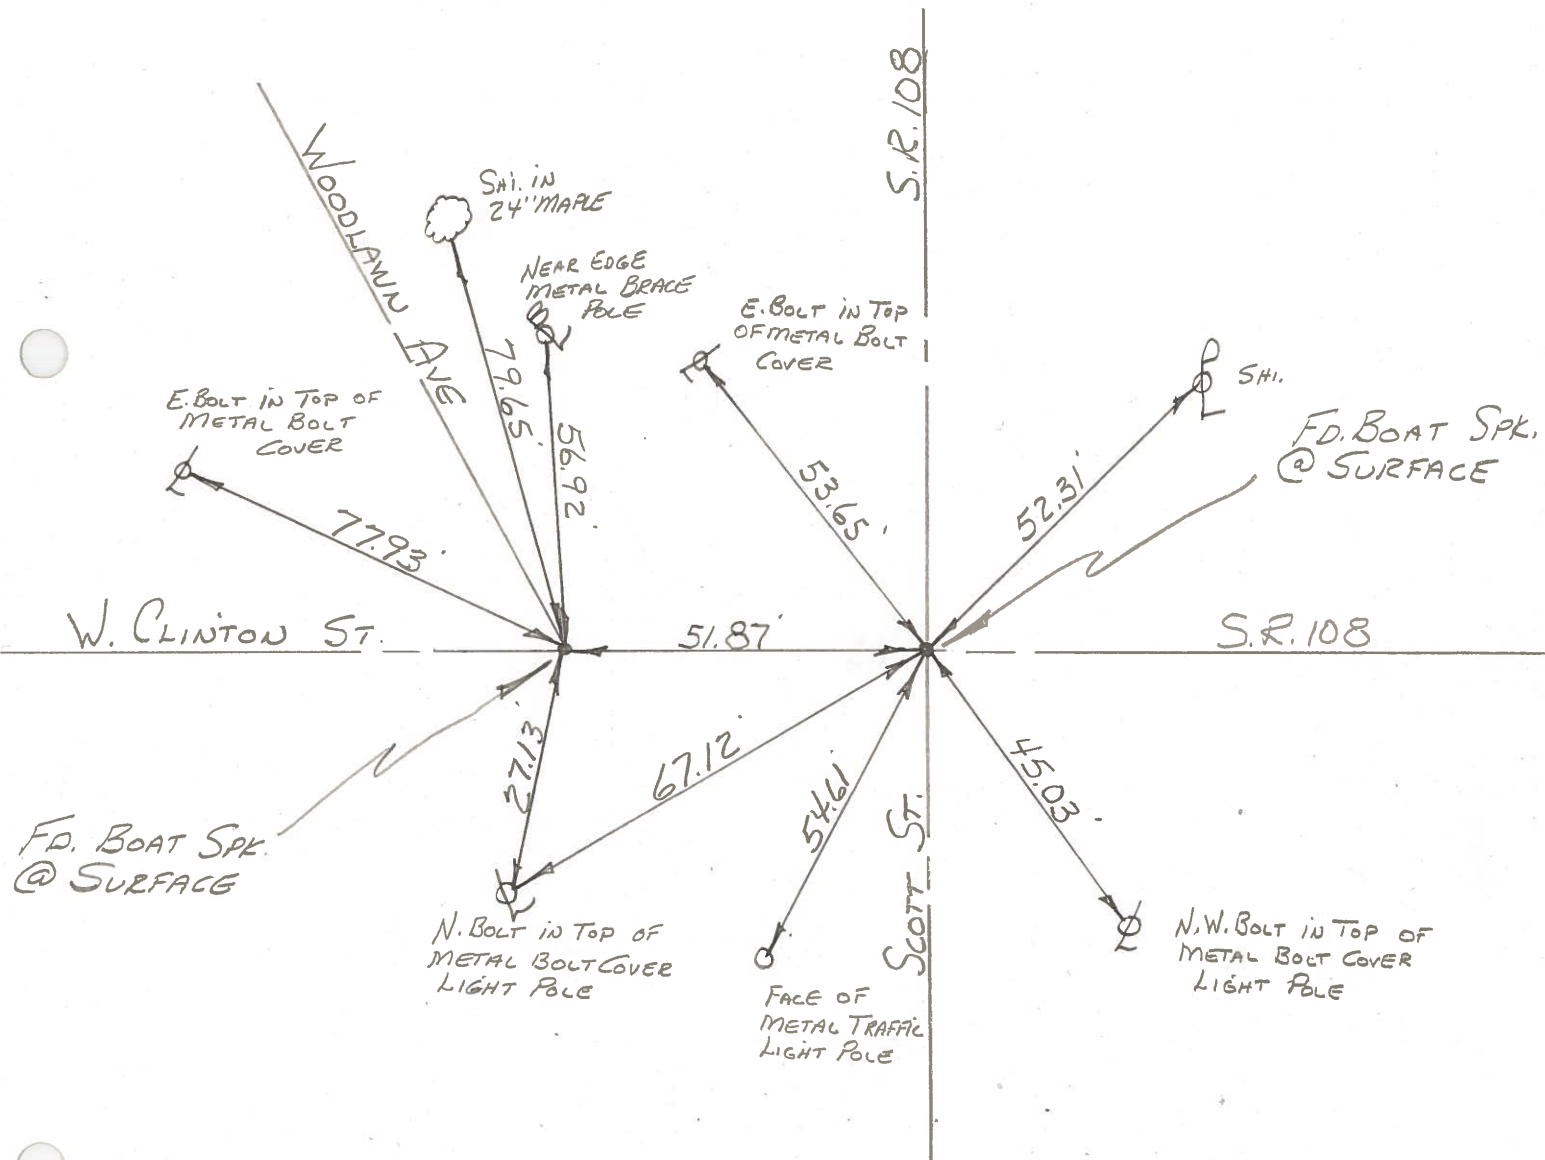 S.R. 108
WOODLAWN AVE
SHI. IN
24" MAPLE
NEAR EDGE
METAL BRACE
POLE
E. BOLT IN TOP
OF METAL BOLT
COVER
SHI.
E. BOLT IN TOP OF
METAL BOLT
COVER
FD. BOAT SPK.
@ SURFACE
79.65'
56.92'
53.65'
52.31'
77.93'
W. CLINTON ST.
51.87'
S.R. 108
27.13'
67.12'
54.61'
45.03'
SCOTT ST.
FD. BOAT SPK.
@ SURFACE
N. BOLT IN TOP OF
METAL BOLT COVER
LIGHT POLE
N.W. BOLT IN TOP OF
METAL BOLT COVER
LIGHT POLE
FACE OF
METAL TRAFFIC
LIGHT POLE